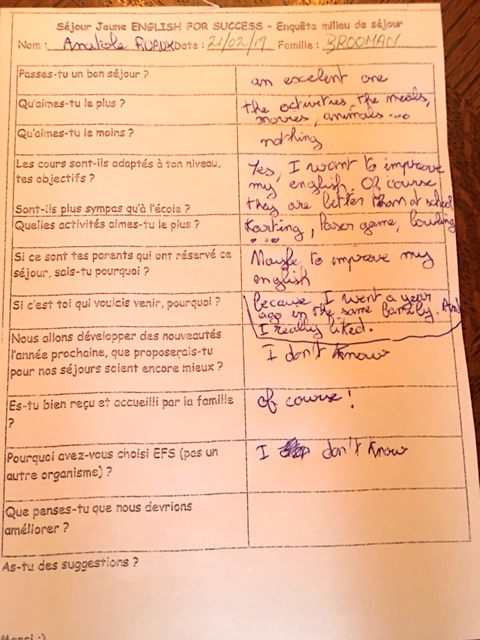 Séjour Jeune ENGLISH FOR SUCCESS - Enquête milieu de séjour
Nom : Anatole Date : 21/02/19 Famille : BROOMAN
Passes-tu un bon séjour ?
an excelent one
Qu'aimes-tu le plus ?
the activities, the meals,
movies, animals...
Qu'aimes-tu le moins ?
nothing
Les cours sont-ils adaptés à ton niveau,
tes objectifs ?
Sont-ils plus sympas qu'à l'école ?
Yes, I want to improve
my english. Of course
they are better than at school
Quelles activités aimes-tu le plus ?
Karting, game, bowling
...
Si ce sont tes parents qui ont réservé ce
séjour, sais-tu pourquoi ?
Maybe to improve my
english
Si c'est toi qui voulais venir, pourquoi ?
because I went a year
ago in the same family. And
I really liked.
Nous allons développer des nouveautés
l'année prochaine, que proposerais-tu
pour nos séjours soient encore mieux ?
I don't know
Es-tu bien reçu et accueilli par la famille
?
of course!
Pourquoi avez-vous choisi EFS (pas un
autre organisme) ?
I don't know
Que penses-tu que nous devrions
améliorer ?
As-tu des suggestions ?
Merci :)